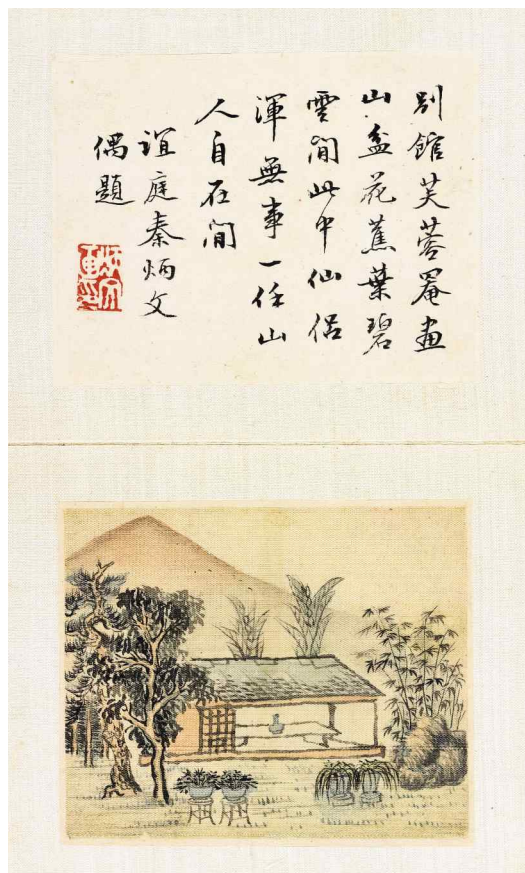 別館芙蓉罨畫
山盆花蕉葉碧
雲間此中仙侶
渾無事一任山
人自在間
誼庭秦炳文
偶題